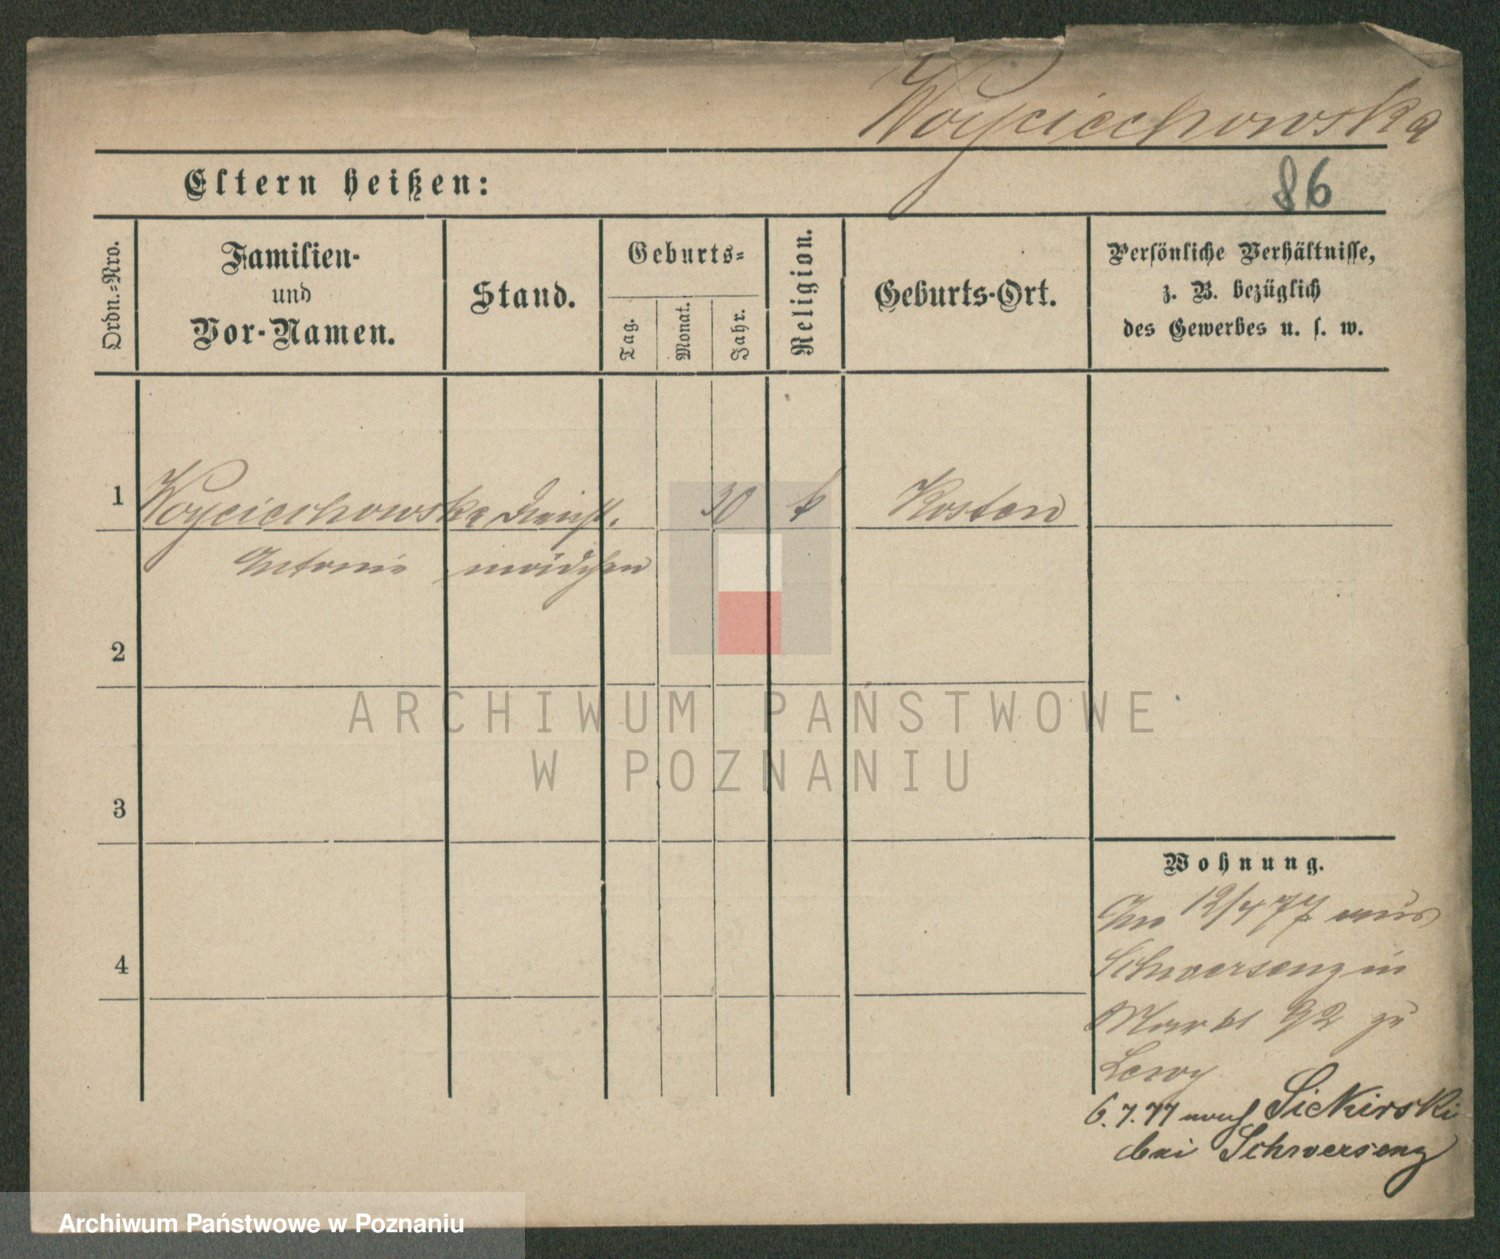 Woyciechowska
86
Eltern heißen:
Ordn.-Nro.
Familien-
und
Vor-Namen.
Stand.
Geburts-
Tag.
Monat.
Jahr.
Religion.
Geburts-Ort.
Persönliche Verhältnisse,
z. B. bezüglich
des Gewerbes u. s. w.
1
Woyciechowska Dienst.
30
k
Kosten
Antonie mädchen
2
ARCHIWUM PAŃSTWOWE
W POZNANIU
3
Wohnung.
12/4 77 aus
Schwersenz in
4
Markt 92 zu
Lewy
6.7.77 nach Siekirski
bei Schwersenz
Archiwum Państwowe w Poznaniu